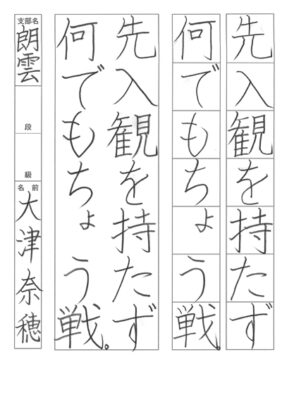 先入観を持たず
何でもちょう戦。
先入観を持たず
何でもちょう戦。
支部名
朗雲
段
級
名前
大津奈穂